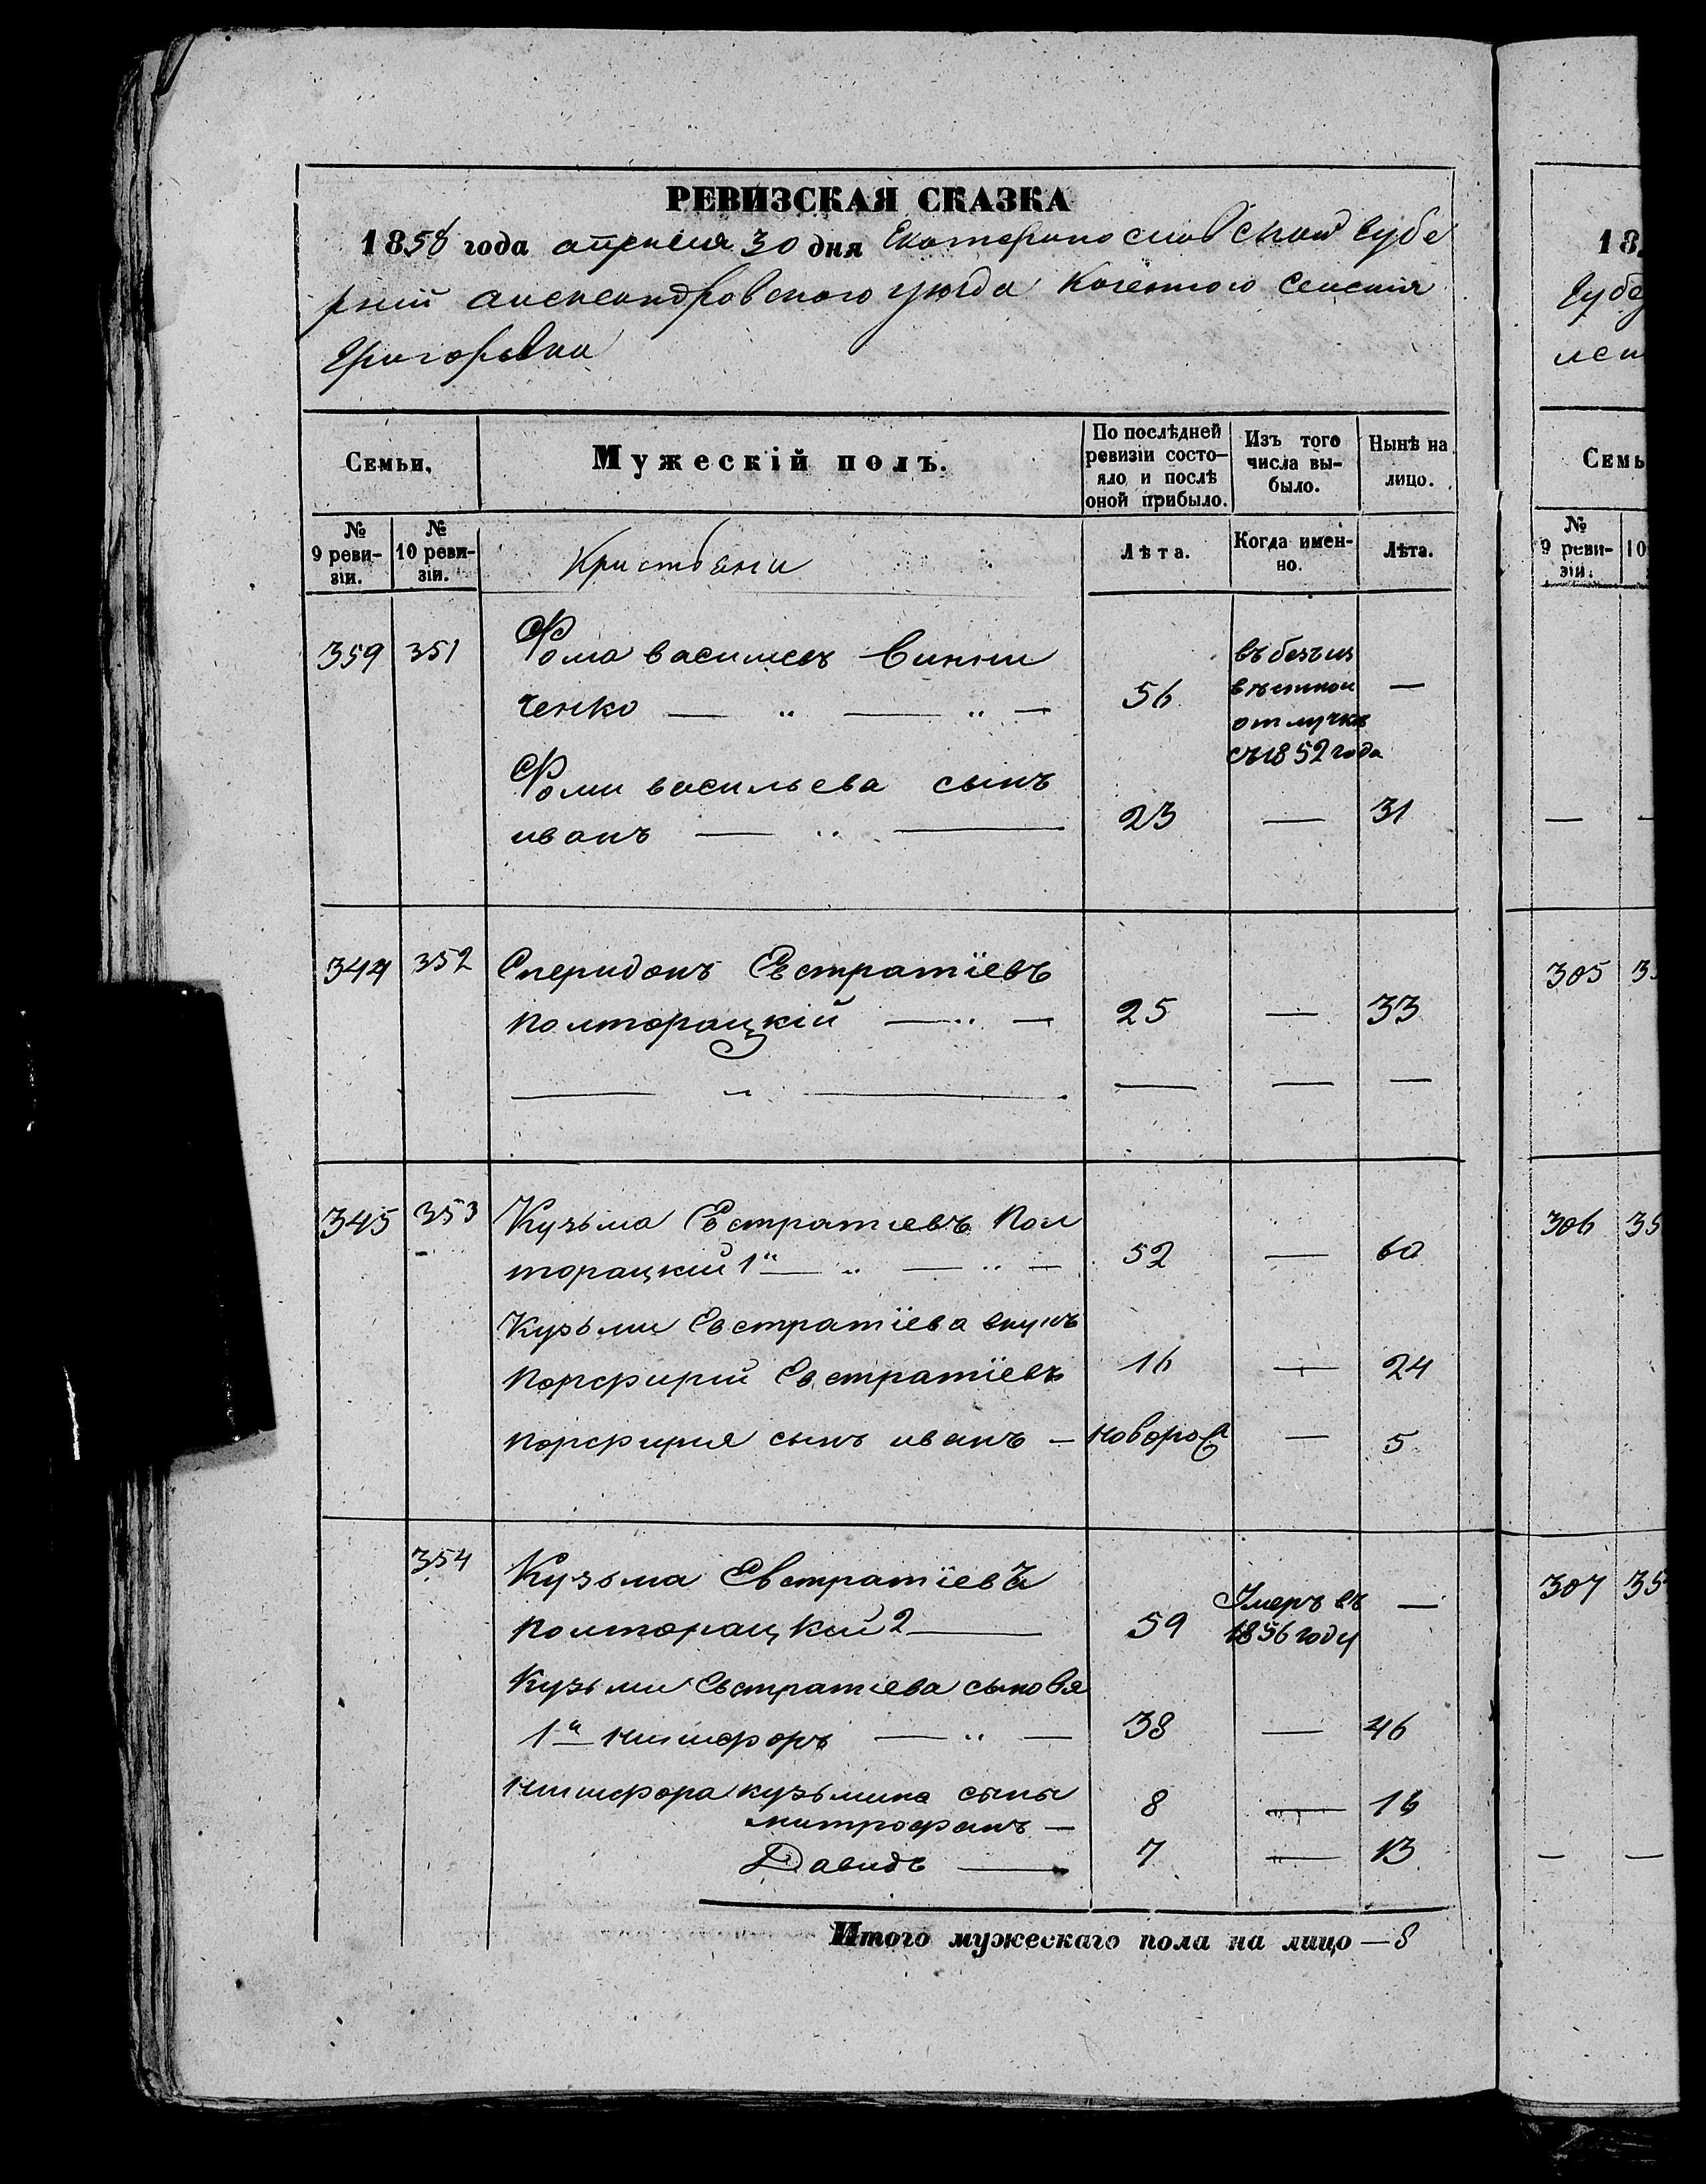 РЕВИЗСКАЯ СКАЗКА
1858 года апреля 30 дня Екатеринославской губе
рнии александровского уезда Казенного Селения
Григорьвки
Семьи. Мужескій полъ. По послѣдней ревизіи состо-яло и послѣ оной прибыло. Изъ того числа вы-было. Нынѣ на лицо.
№ 9 реви-зіи. № 10 реви-зіи. Лѣта. Когда имен-но. Лѣта.
359 351 Фома васильевъ Винни
ченко 56 въ безъиз
вѣстной
отлучке
съ 1852 года
Фоми васильева сынъ
иванъ 23 — 31
344 352 Сперидонъ Евстратіевъ
полторацкій 25 — 33
345 353 Кузьма Евстратиевъ Пол
торацкий 1й 52 — 60
Кузьми Евстратіева внукъ
порфирий Евстратіевъ 16 — 24
порфирия сынъ иванъ — новорож — 5
354 Кузьма Евстратіевъ
полторацкий 2 59 Умеръ въ —
1856 году
Кузьми Евстратиева сыновя
1й никифоръ 38 — 46
никифора кузьмина сыны
митрофанъ — 8 — 16
Давидъ — 7 — 13
Итого мужескаго пола на лицо — 8
18
Губе
лен
Семь
№ 9 реви-зіи. 10
305 3
306 35
307 35